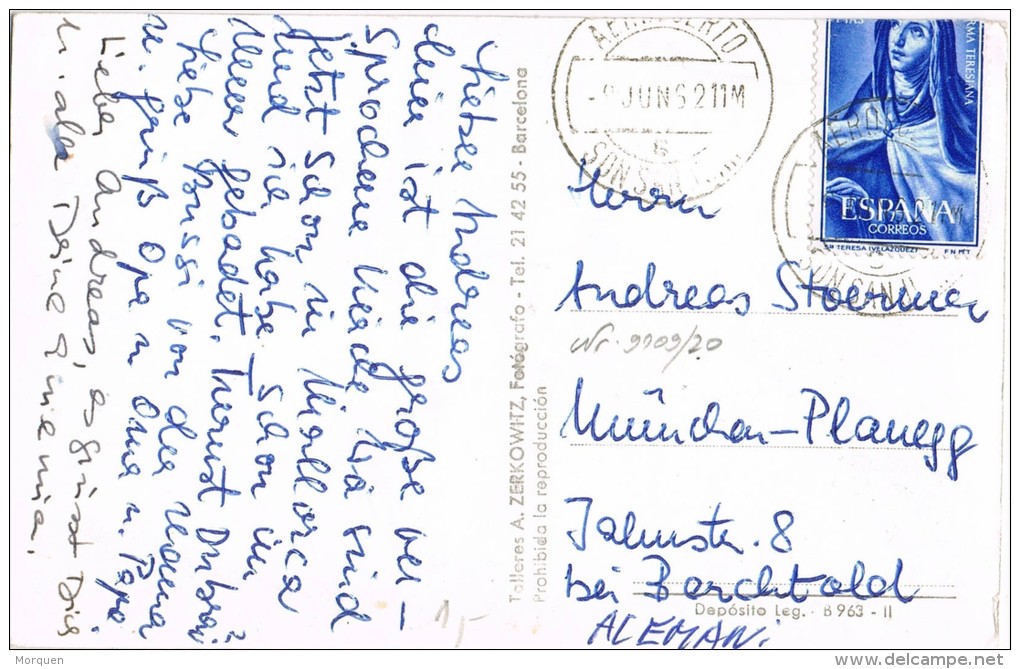 Liebster Andreas
hier ist die große ver-
sprochene Karte. Wir sind
jetzt schon in Mallorca
und ich habe schon im
Meer gebadet. Trinkst Du brav?
Liebe Bussi von der Mama
u. Opa u. Oma u. Papa
Lieber Andreas, es grüsst Dich
u. alle Deine
Talleres A. ZERKOWITZ, Fotógrafo - Tel. 21 42 55 - Barcelona
Prohibida la reproducción
AEROPUERTO
JUN 62 11M
SON SAN JUAN
TERESIANA
ESPAÑA
CORREOS
STA TERESA (VELAZQUEZ)
F.N.M.T
Herrn
Andreas Stoermer
Nr. 9909/20
München-Planegg
8
bei Berchtold
Depósito Leg. - B 963 - II
ALEMANI
1,-
Morquen
delcampe.net